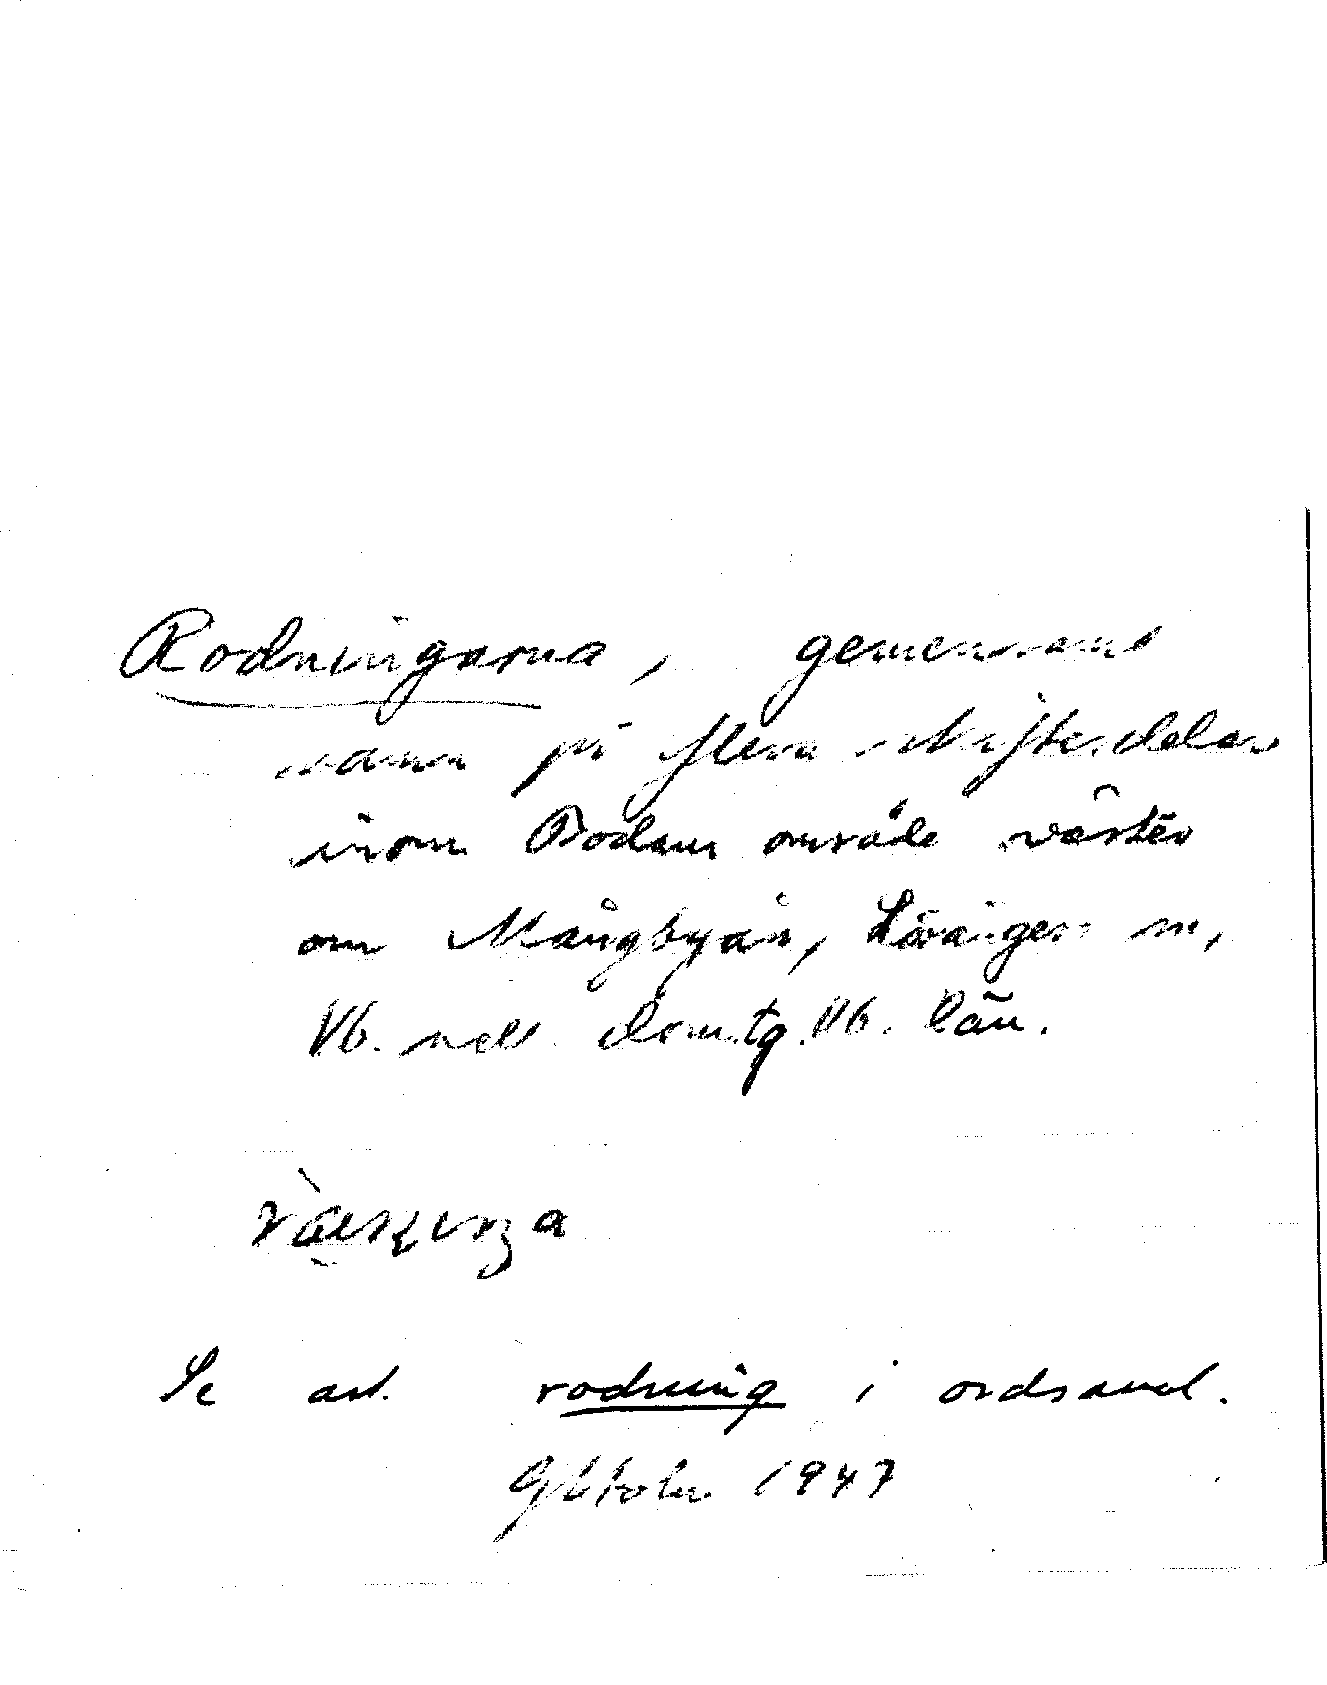 Rodningarna, gemensamt
namn på flera skiftesdelar
inom Bodans område väster
om Mångbyån, Lövångers sn,
Vb. ndr. domtg. Vb. län.
Se art. rodning i ordsaml.
1947